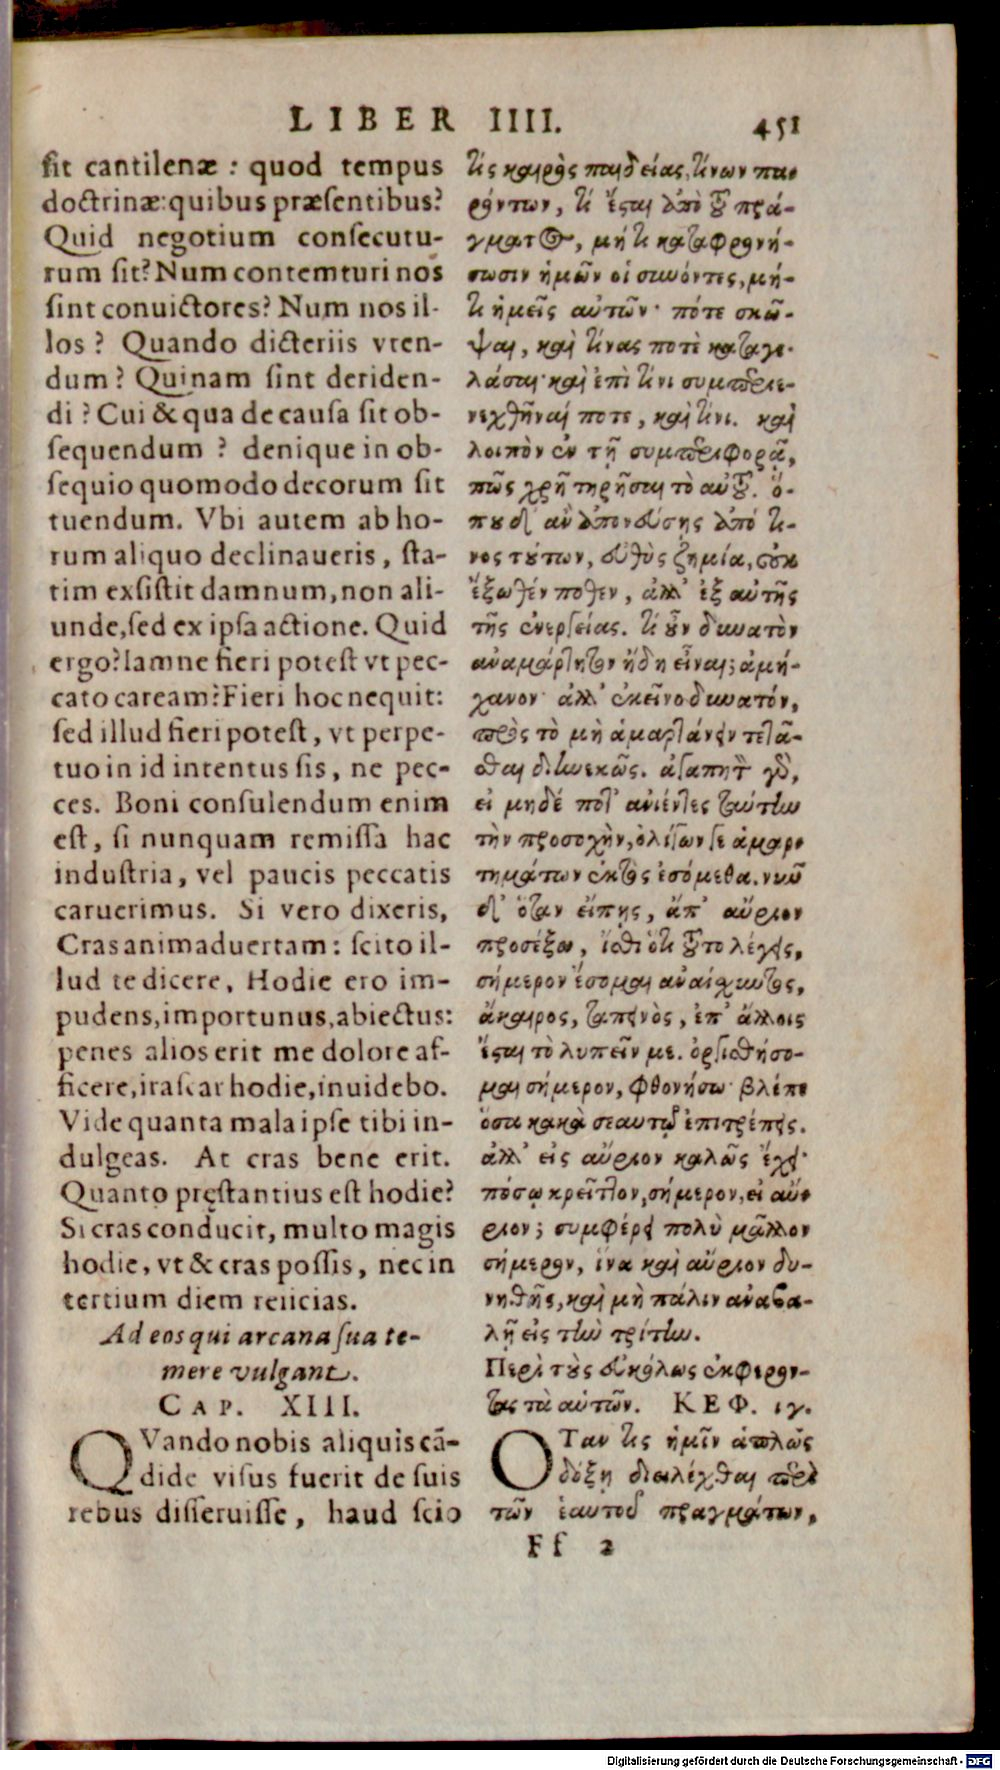 LIBER IIII. 451
ſit cantilenæ : quod tempus
doctrinæ: quibus præſentibus?
Quid negotium conſecutu-
rum ſit? Num contemturi nos
ſint conuictores? Num nos il-
los ? Quando dicteriis vten-
dum ? Quinam ſint deriden-
di ? Cui & qua de cauſa ſit ob-
ſequendum ? denique in ob-
ſequio quomodo decorum ſit
tuendum. Vbi autem ab ho-
rum aliquo declinaueris, ſta-
tim exſiſtit damnum, non ali-
unde, ſed ex ipſa actione. Quid
ergo? Iamne fieri poteſt vt pec-
cato caream? Fieri hoc nequit:
ſed illud fieri poteſt, vt perpe-
tuo in id intentus ſis, ne pec-
ces. Boni conſulendum enim
eſt, ſi nunquam remiſſa hac
induſtria, vel paucis peccatis
caruerimus. Si vero dixeris,
Cras animaduertam: ſcito il-
lud te dicere, Hodie ero im-
pudens, importunus, abiectus:
penes alios erit me dolore af-
ficere, iraſcar hodie, inuidebo.
Vide quanta mala ipſe tibi in-
dulgeas. At cras bene erit.
Quanto pręſtantius eſt hodie?
Si cras conducit, multo magis
hodie, vt & cras poſſis, nec in
tertium diem reiicias.
Ad eos qui arcana ſua te-
mere vulgant.
CAP. XIII.
QVando nobis aliquis cā-
dide viſus fuerit de ſuis
rebus diſſeruiſſe, haud ſcio
τίς καιρὸς παιδείας, τίνων πα-
ρόντων, τί ἔσται ἀπὸ τοῦ πρά-
γματος, μή τι καταφρονή-
σωσιν ἡμῶν οἱ συνόντες, μή-
τι ἡμεῖς αὐτῶν· πότε σκῶ-
ψαι, καὶ τίνας ποτὲ καταγε-
λάσαι· καὶ ἐπὶ τίνι συμπεριε-
νεχθῆναί ποτε, καὶ τίνι. καὶ
λοιπὸν ἐν τῇ συμπεριφορᾷ,
πῶς χρῆ τηρῆσαι τὸ αὐτοῦ. ὅ-
που δ' ἂν ἀπονεύσης ἀπό τι-
νος τούτων, εὐθὺς ζημία, οὐκ
ἔξωθέν ποθεν, ἀλλ' ἐξ αὐτῆς
τῆς ἐνεργείας. τί οὖν δυνατὸν
ἀναμάρτητον ἤδη εἶναι; ἀμή-
χανον· ἀλλ' ἐκεῖνο δυνατόν,
πρὸς τὸ μὴ ἁμαρτάνειν τετά-
σθαι διηνεκῶς. ἀγαπητὸν γὰρ,
εἰ μηδέ ποτ' ἀνιέντες ταύτην
τὴν προσοχὴν, ὀλίγων γε ἁμαρ-
τημάτων ἐκτὸς ἐσόμεθα. νῦν
δ' ὅταν εἴπῃς, ἀπ' αὔριον
προσέξω, ἴσθι ὅτι τοῦτο λέγεις,
σήμερον ἔσομαι ἀναίσχυντος,
ἄκαιρος, ταπεινὸς, ἐπ' ἄλλοις
ἔσται τὸ λυπεῖν με. ὀργισθήσο-
μαι σήμερον, φθονήσω· βλέπε
ὅσα κακὰ σεαυτῷ ἐπιτρέπεις.
ἀλλ' εἰς αὔριον καλῶς ἕξει·
πόσῳ κρεῖττον, σήμερον, εἰ αὔ-
ριον; συμφέρει πολὺ μᾶλλον
σήμερον, ἵνα καὶ αὔριον δυ-
νηθῇς, καὶ μὴ πάλιν ἀναβά-
λῃ εἰς τὴν τρίτην.
Περὶ τοὺς εὐκόλως ἐκφέρον-
τας τὰ αὑτῶν. ΚΕΦ. ιγ.
ΟΤαν τις ἡμῖν ἁπλῶς
δόξῃ διειλέχθαι περὶ
τῶν ἑαυτοῦ πραγμάτων,
Ff 2
Digitalisierung gefördert durch die Deutsche Forschungsgemeinschaft - DFG